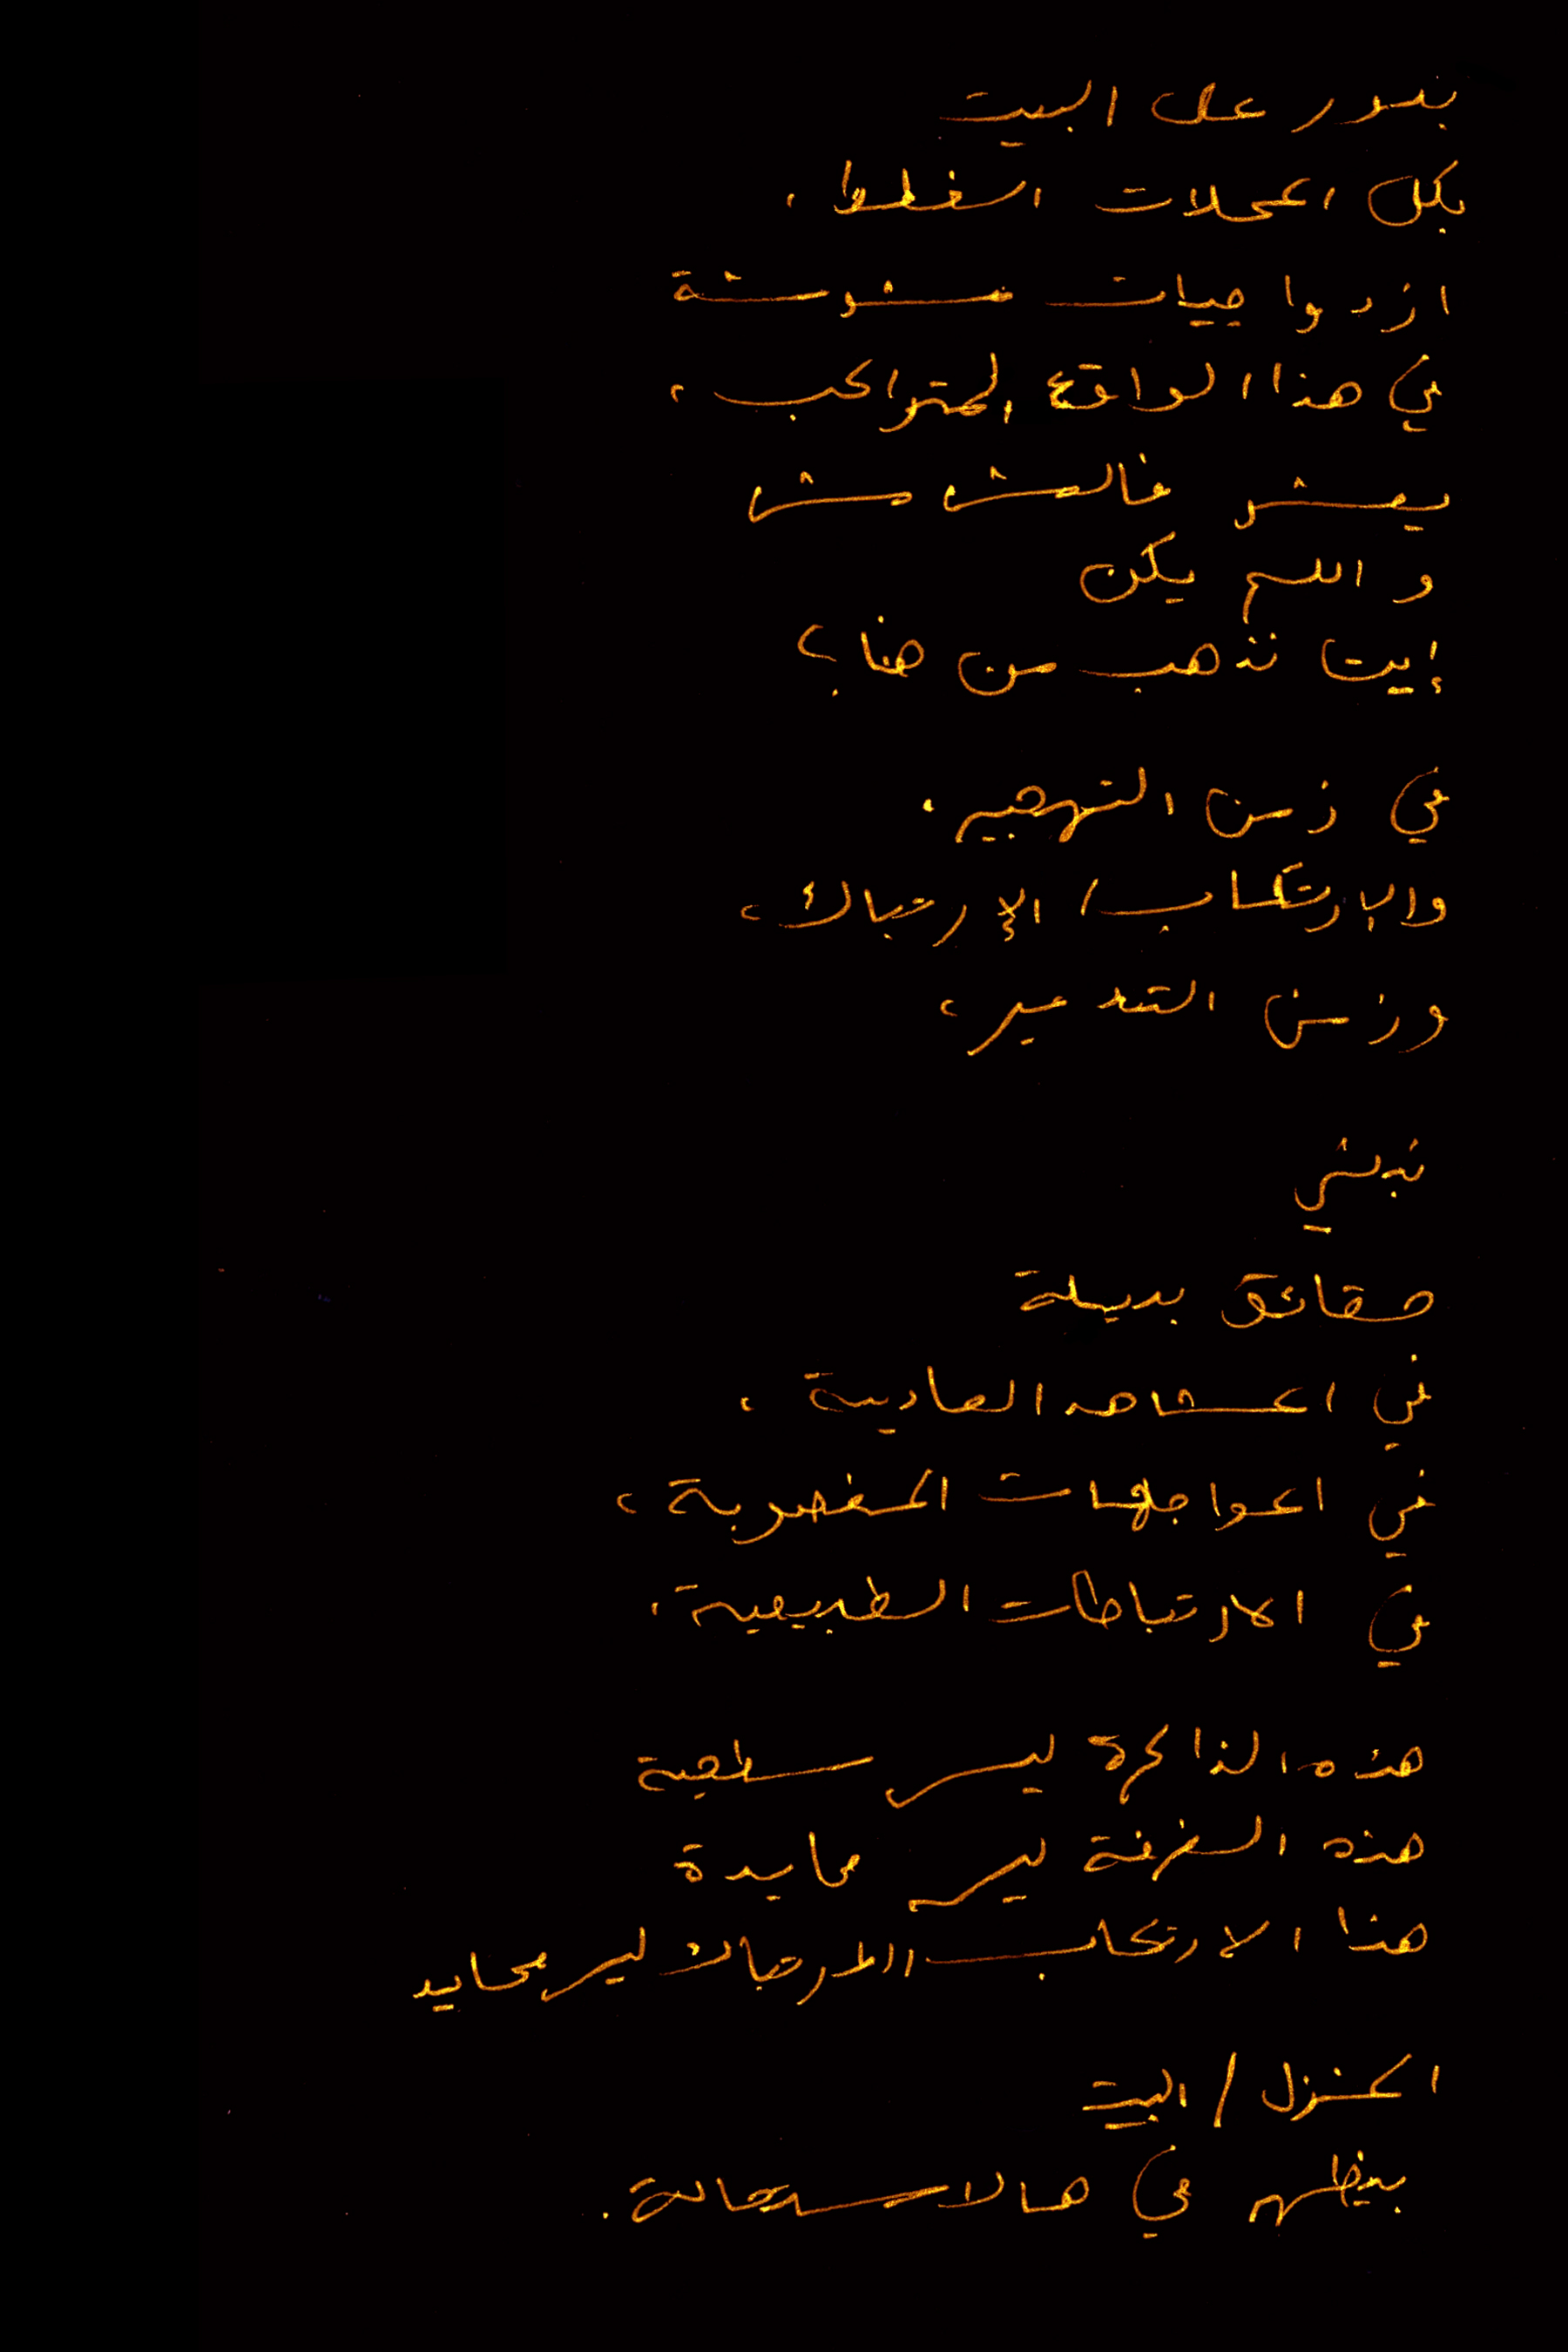 بندور على البيت
بكل المحلات الغلط،
ازدواجيات مشوشة
في هذا الواقع المتراكب،
يعشر فالمش مش
و اللم يكن
إيت نذهب من هنا؟
في زمن التهجير.
والإرتكاب/ الإرتباك،
وزمن التدمير،
نبشي
حقائق بديلة
في المشاهد العادية،
في المواجهات المغصوبة،
في الارتباطات الطبيعية،
هذه الذاكرة ليس سطحية
هذه الغرفة ليس محايدة
هذا الارتكاب الارتباك ليس محايد
المنزل / البيت
بيظهر في هالاستحالة.